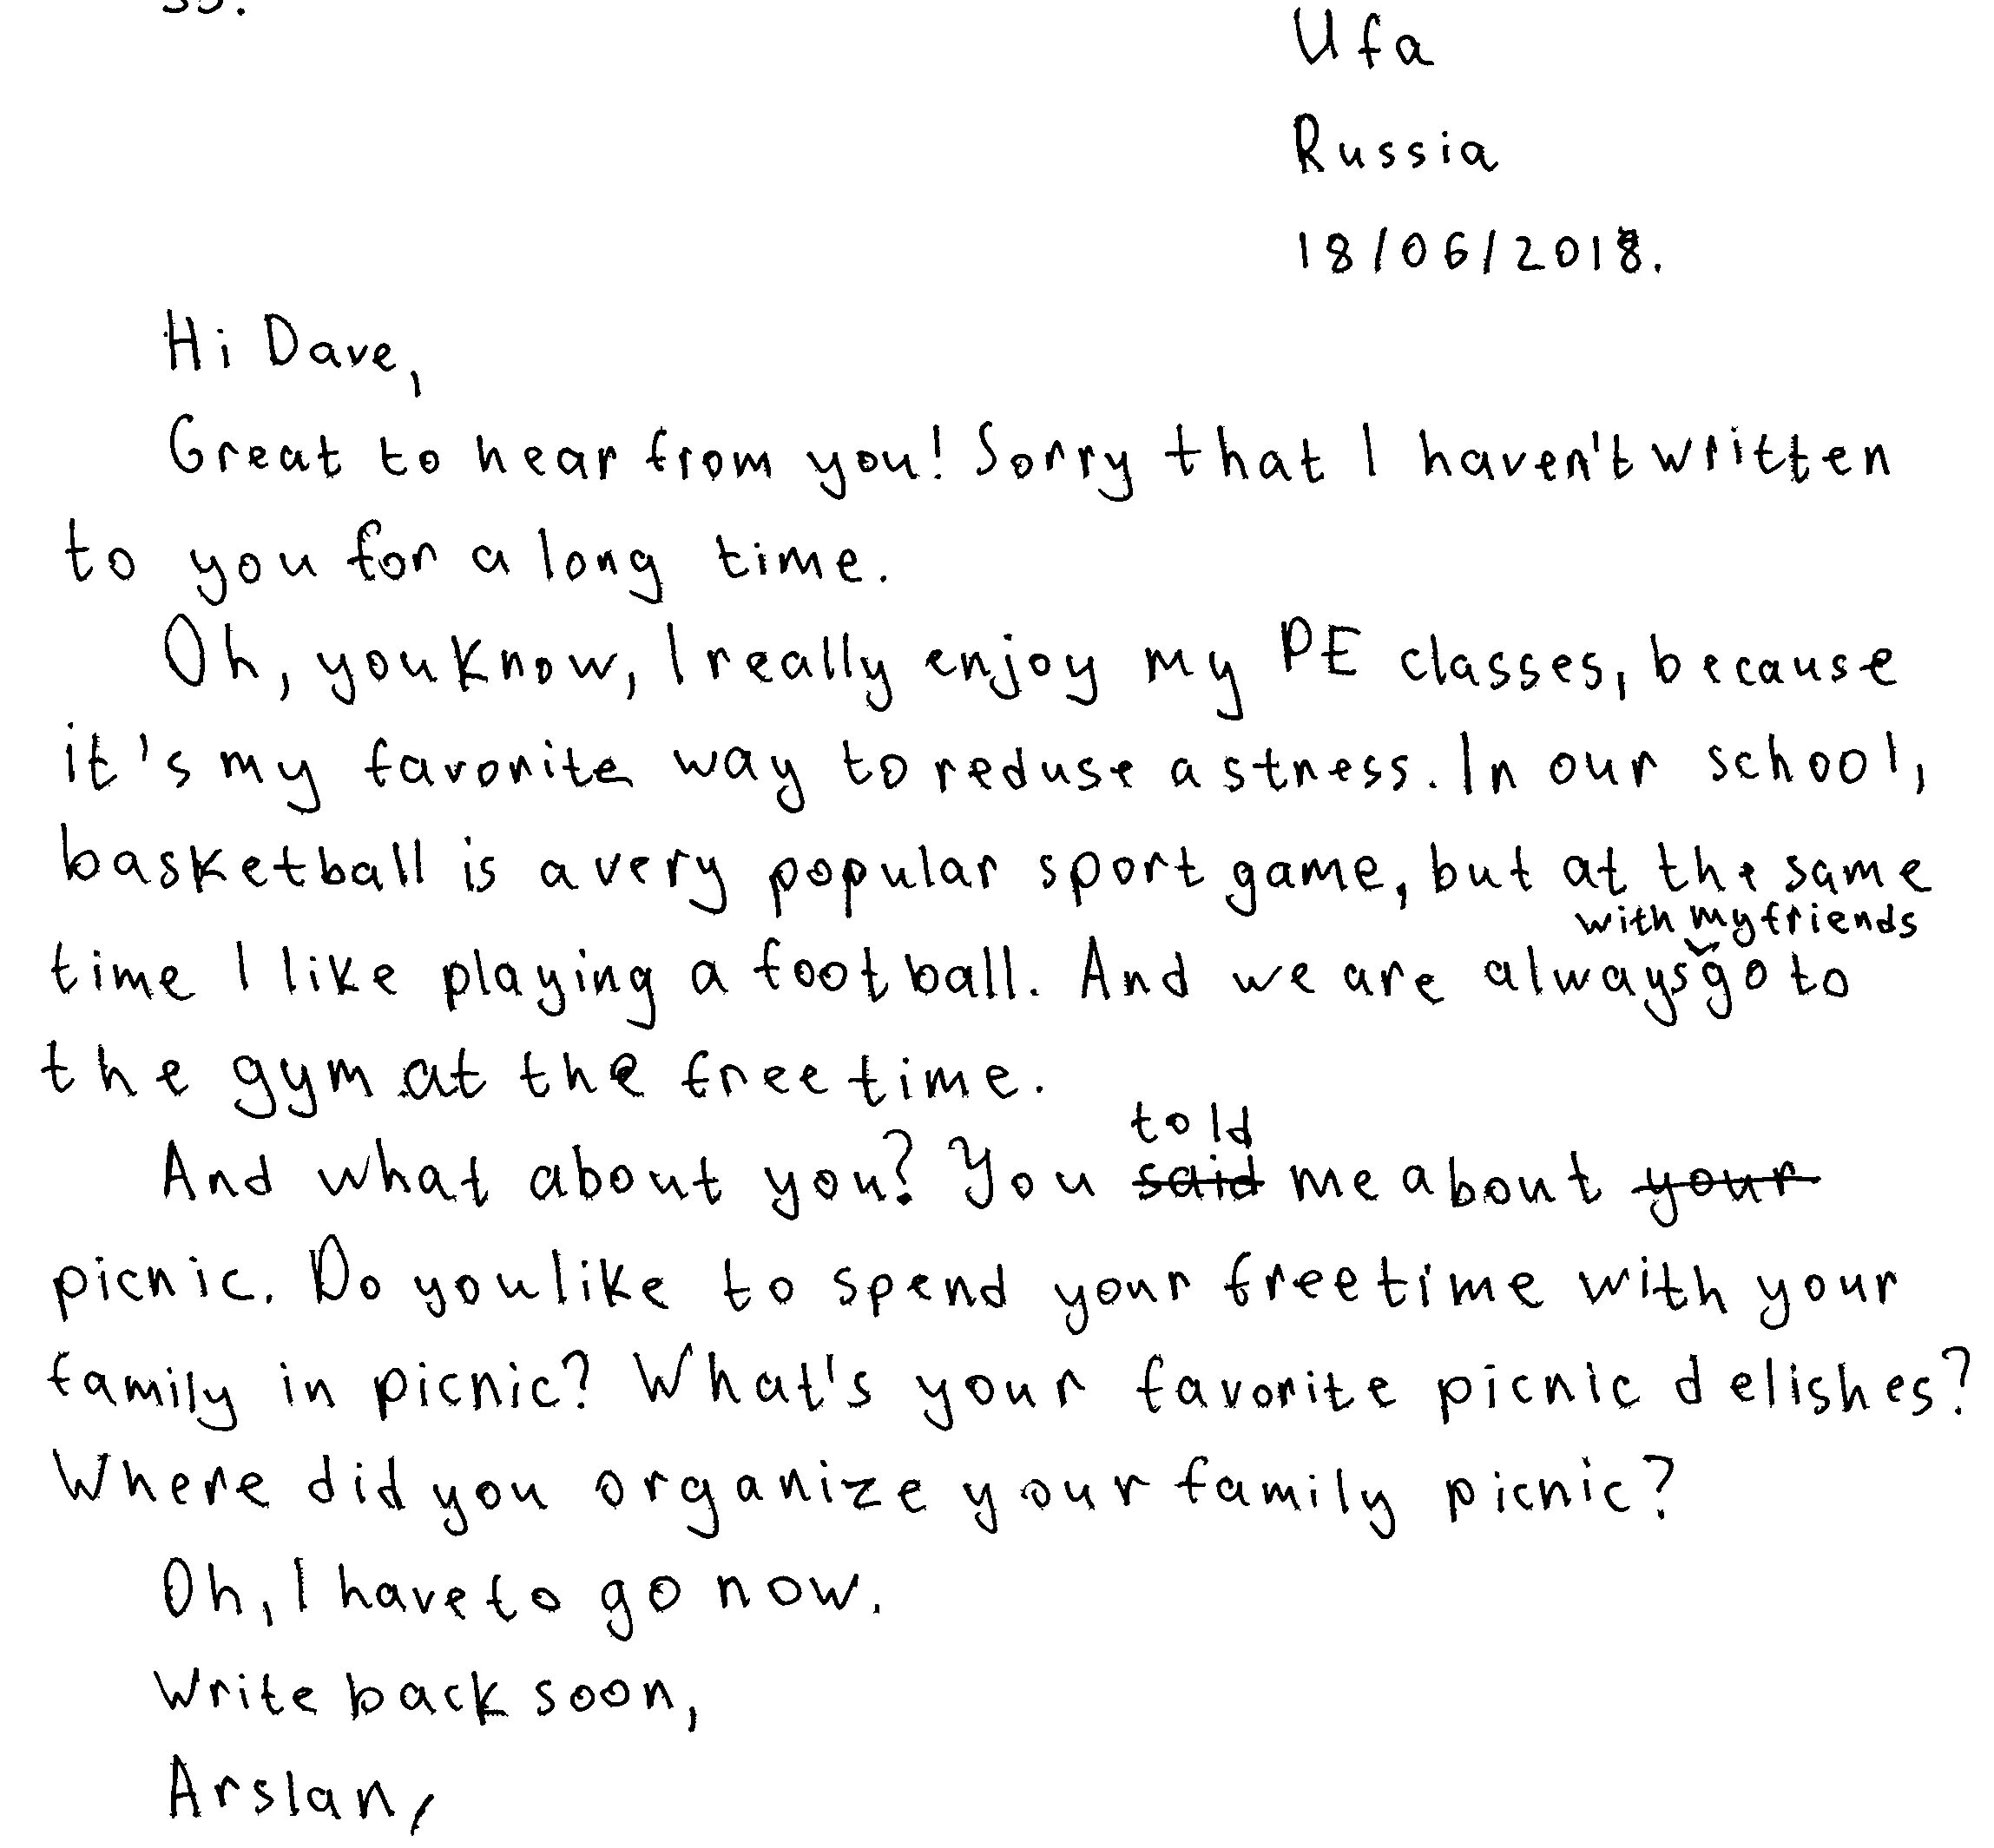 Ufa
Russia
18/06/2018.
Hi Dave,
Great to hear from you! Sorry that I haven't written
to you for a long time.
Oh, you know, I really enjoy my PE classes, because
it's my favorite way to reduse a stress. In our school,
basketball is a very popular sport game, but at the same
time I like playing a football. And we are always with my friends go to
the gym at the free time.
And what about you? You told me about
picnic. Do you like to spend your free time with your
family in picnic? What's your favorite picnic delishes?
Where did you organize your family picnic?
Oh, I have to go now.
Write back soon,
Arslan,